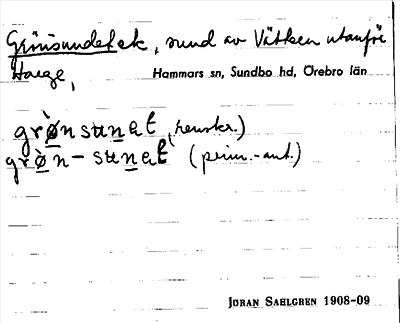 Grönsundet ek, sund av Vättern utanför
Harge, Hammars sn, Sundbo hd, Örebro län
grø̀nsunet (renskr.)
grø̀n-sunet (prim.-ant.)
JÖRAN SAHLGREN 1908-09